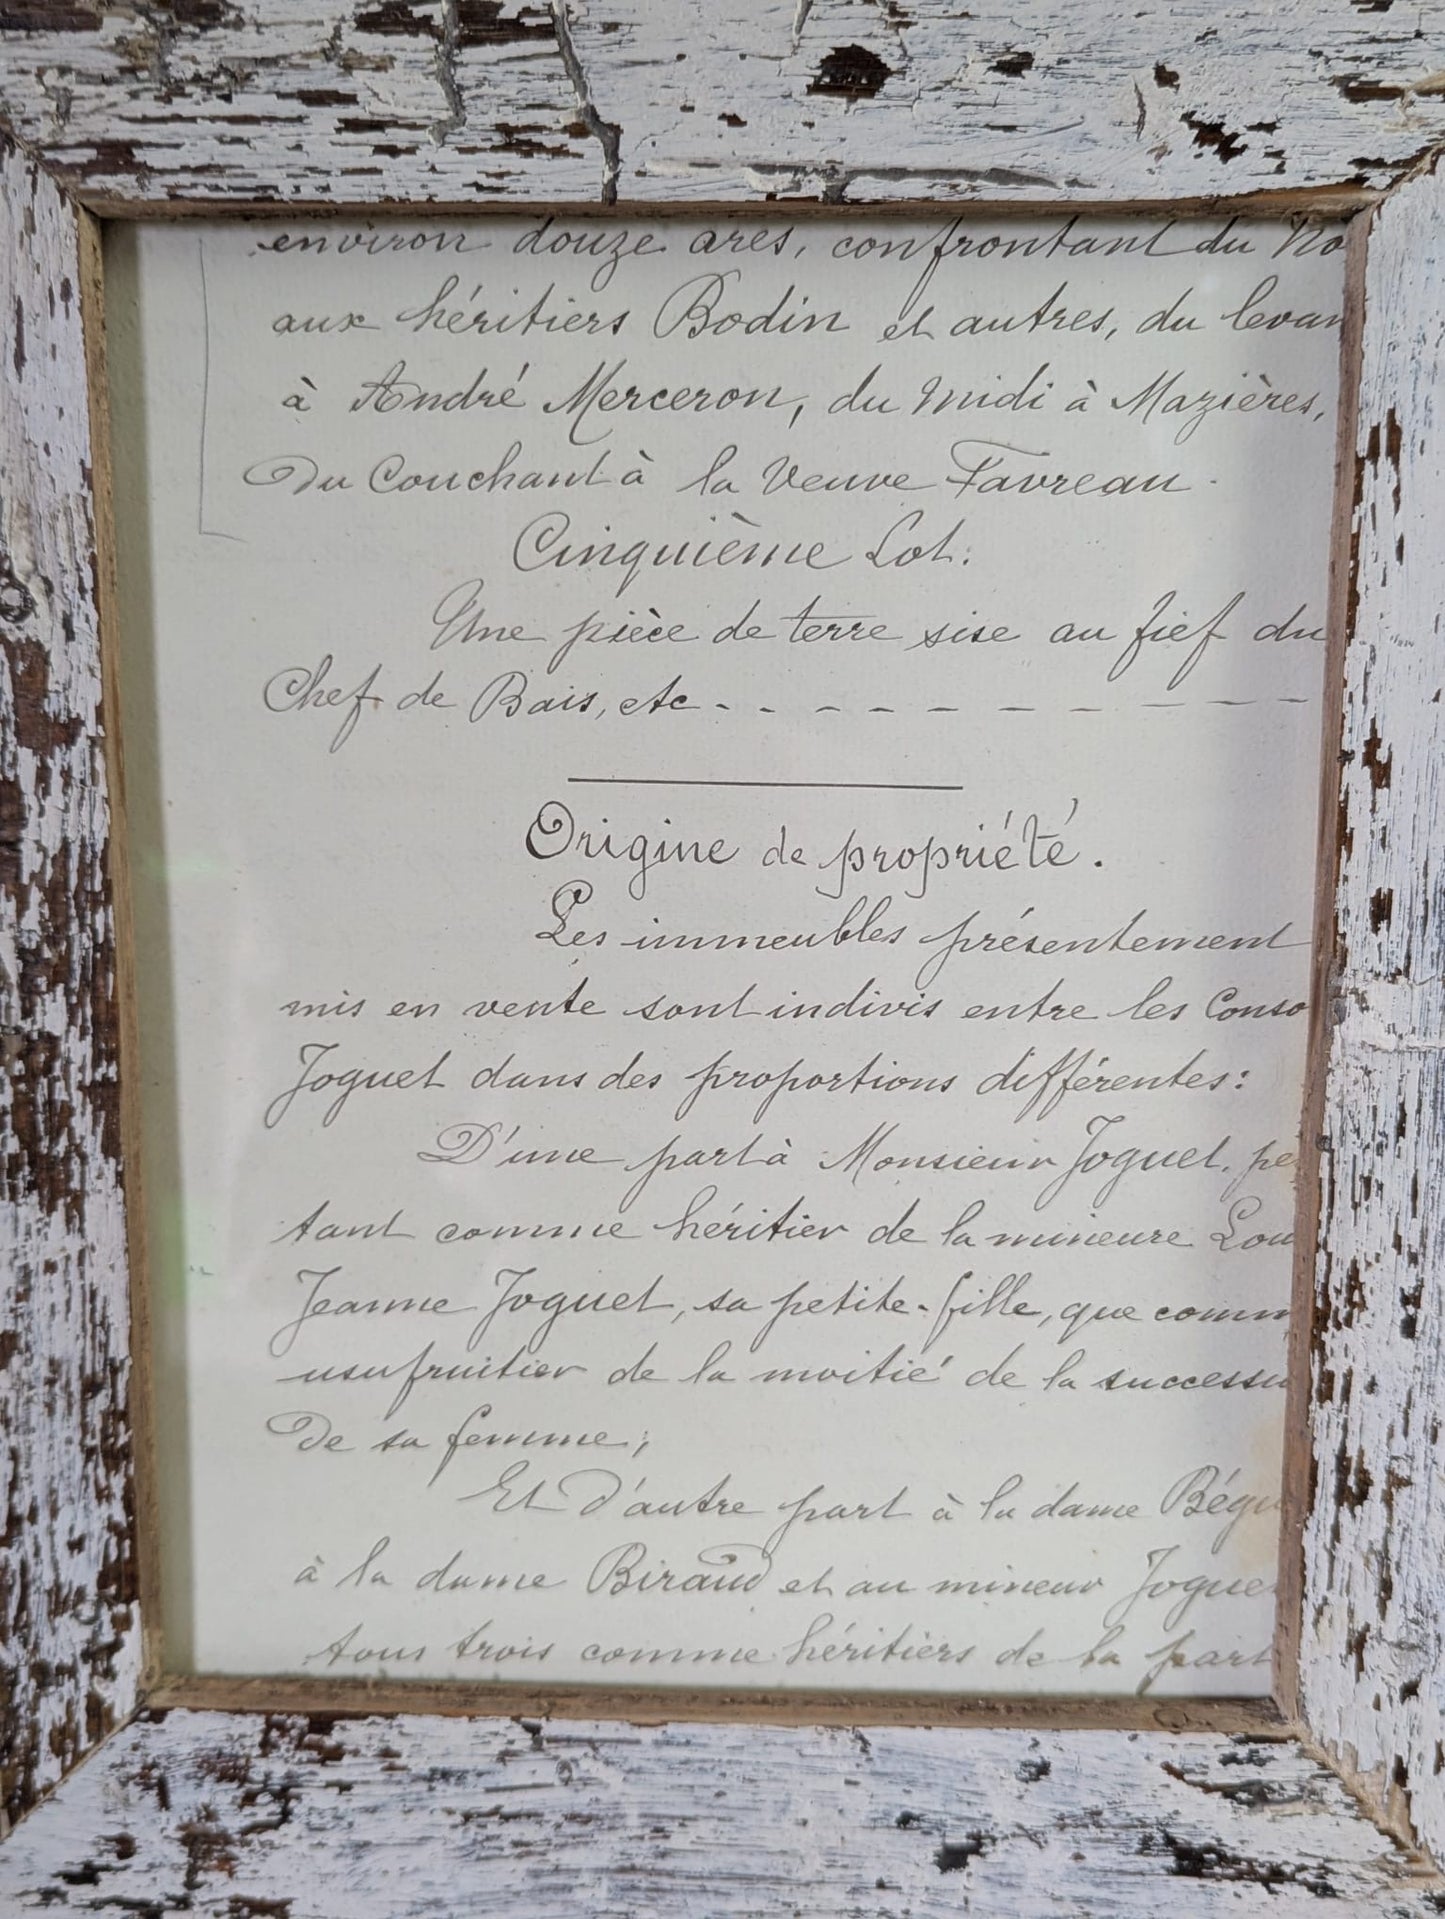 environ douze ares, confrontant du No
aux héritiers Bodin et autres, du levan
à André Merceron, du midi à Mazières,
Du Couchant à la Veuve Favreau.
Cinquième Lot.
Une pièce de terre sise au fief du
Chef de Bais, etc - - - - - - - - - - -
Origine de propriété.
Les immeubles présentement
mis en vente sont indivis entre les Conso
Joguet dans des proportions différentes:
D'une part à Monsieur Joguet, pe
tant comme héritier de la mineure Lou
Jeanne Joguet, sa petite-fille, que comm
usufruitier de la moitié de la success
De sa femme;
Et d'autre part à la dame Bégu
à la dame Biraud et au mineur Jogue
tous trois comme héritiers de la part